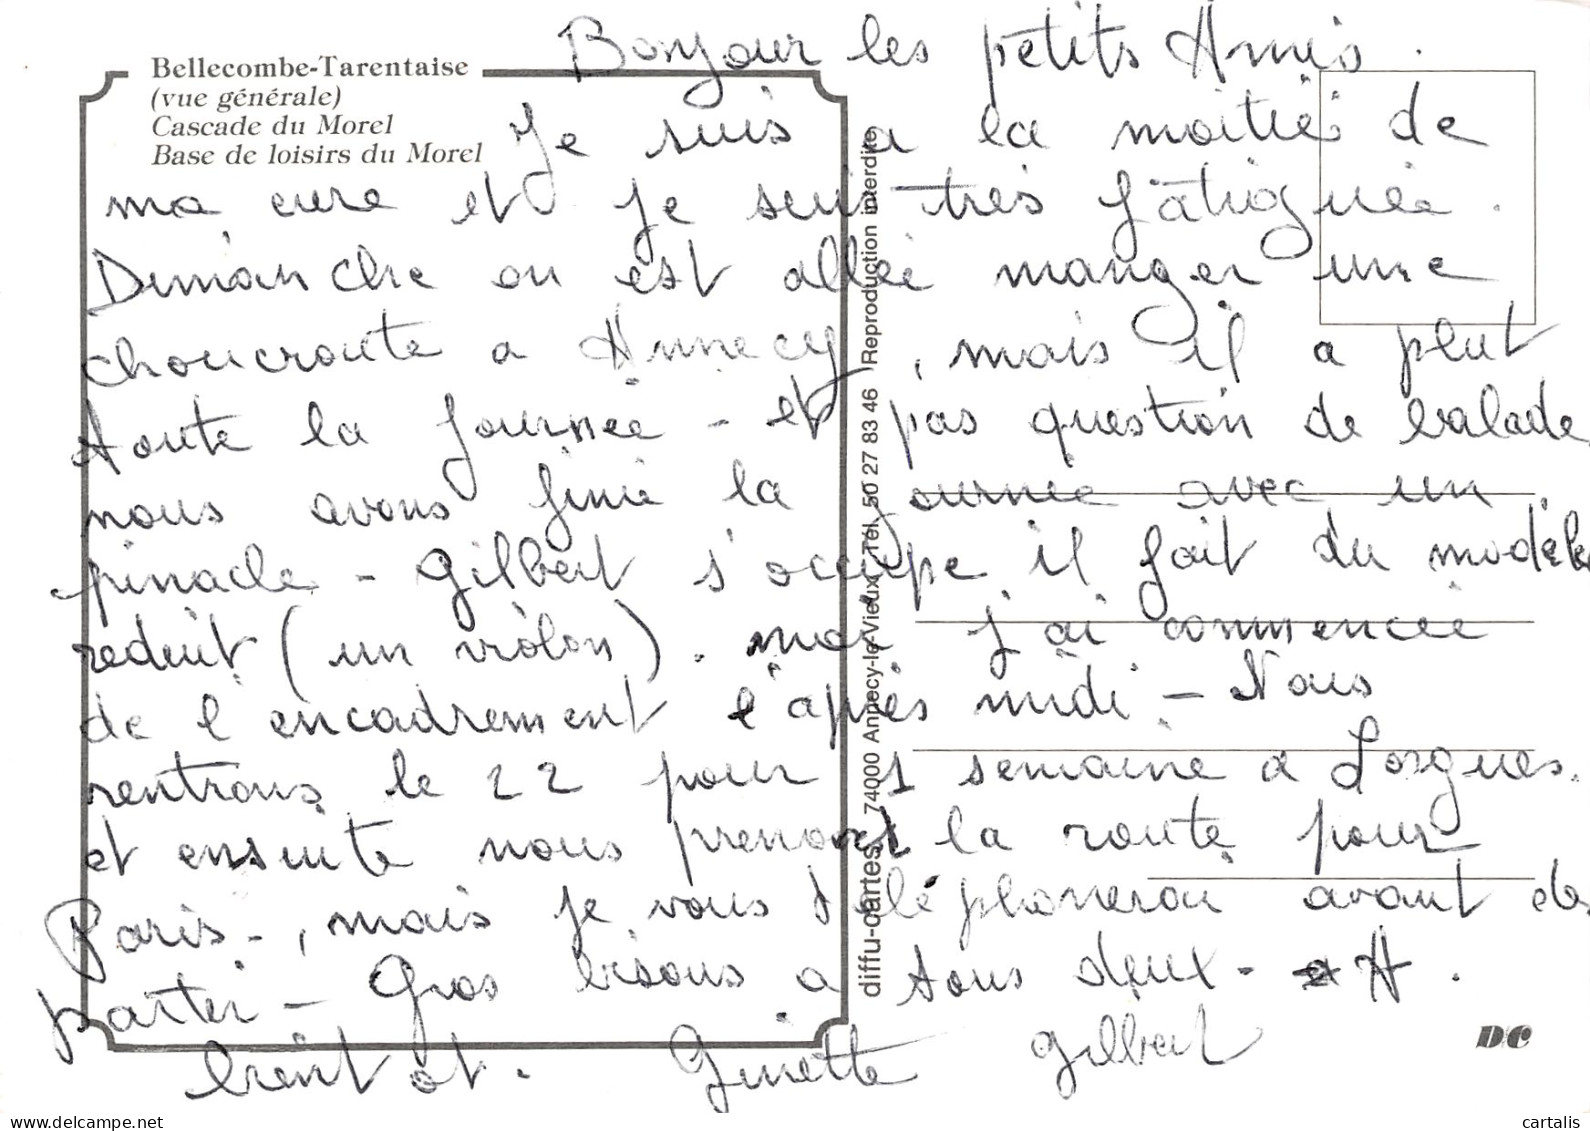 Bonjour les petits Amis.
Bellecombe-Tarentaise
(vue générale)
Cascade du Morel
Base de loisirs du Morel
Je suis a la moitié de
ma cure et je suis très fâtiguée.
Dimanche on est allée manger une
choucroute a Annecy, mais il a plut
toute la journée - et pas question de balade,
nous avons finie la journée avec un
pinacle - Gilbert s'occupe il fait du modèle
reduit (un violon). moi j'ai commencée
de l'encadrement l'après midi - Nous
rentrons le 22 pour 1 semaine a Lorgues.
et ensuite nous prenons la route pour
Paris -, mais je vous téléphonerai avant de
partir - Gros bisous a tous deux - A.
bientot. Ginette Gilbert
diffu-cartes, 74000 Annecy-le-Vieux, Tél. 50 27 83 46 Reproduction interdite
DC
cartalis
delcampe.net